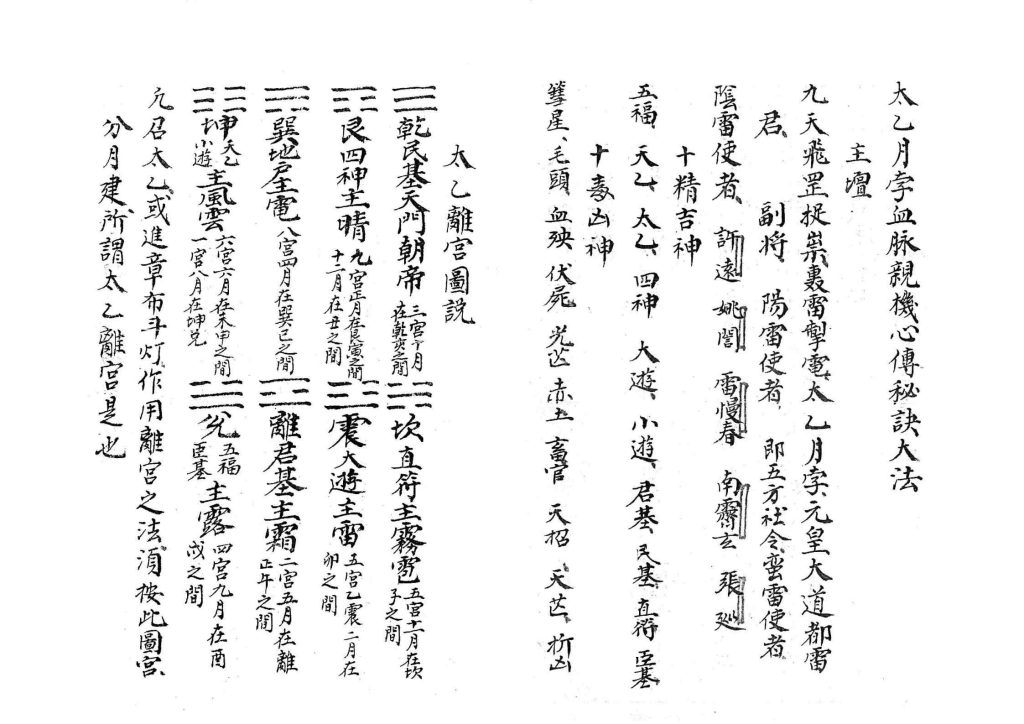 太乙月孛血脉親機心傳秘訣大法
主壇
九天飛罡捉祟轟雷掣電太乙月孛元皇大道都雷
君 副将 陽雷使者 即五方社令蛮雷使者
陰雷使者 許遠 姚訚 雷慢春 南霽云 張巡
十精吉神
五福 天乙 太乙 四神 大遊 小遊 君基 民基 直符 臣基
十毒凶神
彗星 毛頭 血殃 伏屍 光芒 赤土 畜官 天招 天芒 折凶
太乙離宮圖説
☰ 乾民基天門朝帝 三宮十月在乾亥之間 ☵ 坎直符主霧雹 五宮十一月在坎子之間
☶ 艮四神主晴 九宮正月在艮寅之間十二月在丑之間 ☳ 震大遊主雷 五宮乙震二月在卯之間
☴ 巽地户主電 八宮四月在巽巳之間 ☲ 離君基主霜 二宮五月在離正午之間
☷ 坤天乙小遊主風雲 六宮六月在未申之間一宮八月在坤兑 ☱ 兑五福臣基主露 四宮九月在酉戌之間
凢召太乙或進章布斗灯作用離宮之法須按此圖宮
分月建所謂太乙離宮是也